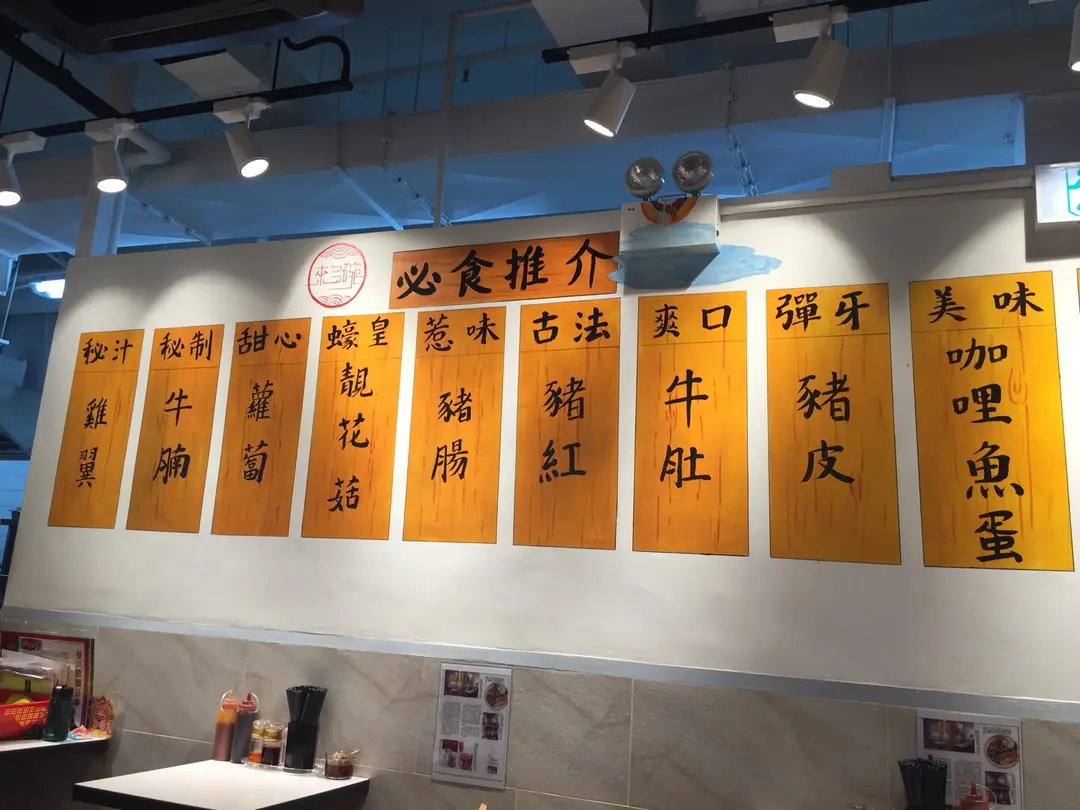 必食推介
來三碗
秘汁
雞翼
秘制
牛腩
甜心
蘿蔔
蠔皇
靚花菇
惹味
豬腸
古法
豬紅
爽口
牛肚
彈牙
豬皮
美味
咖哩魚蛋